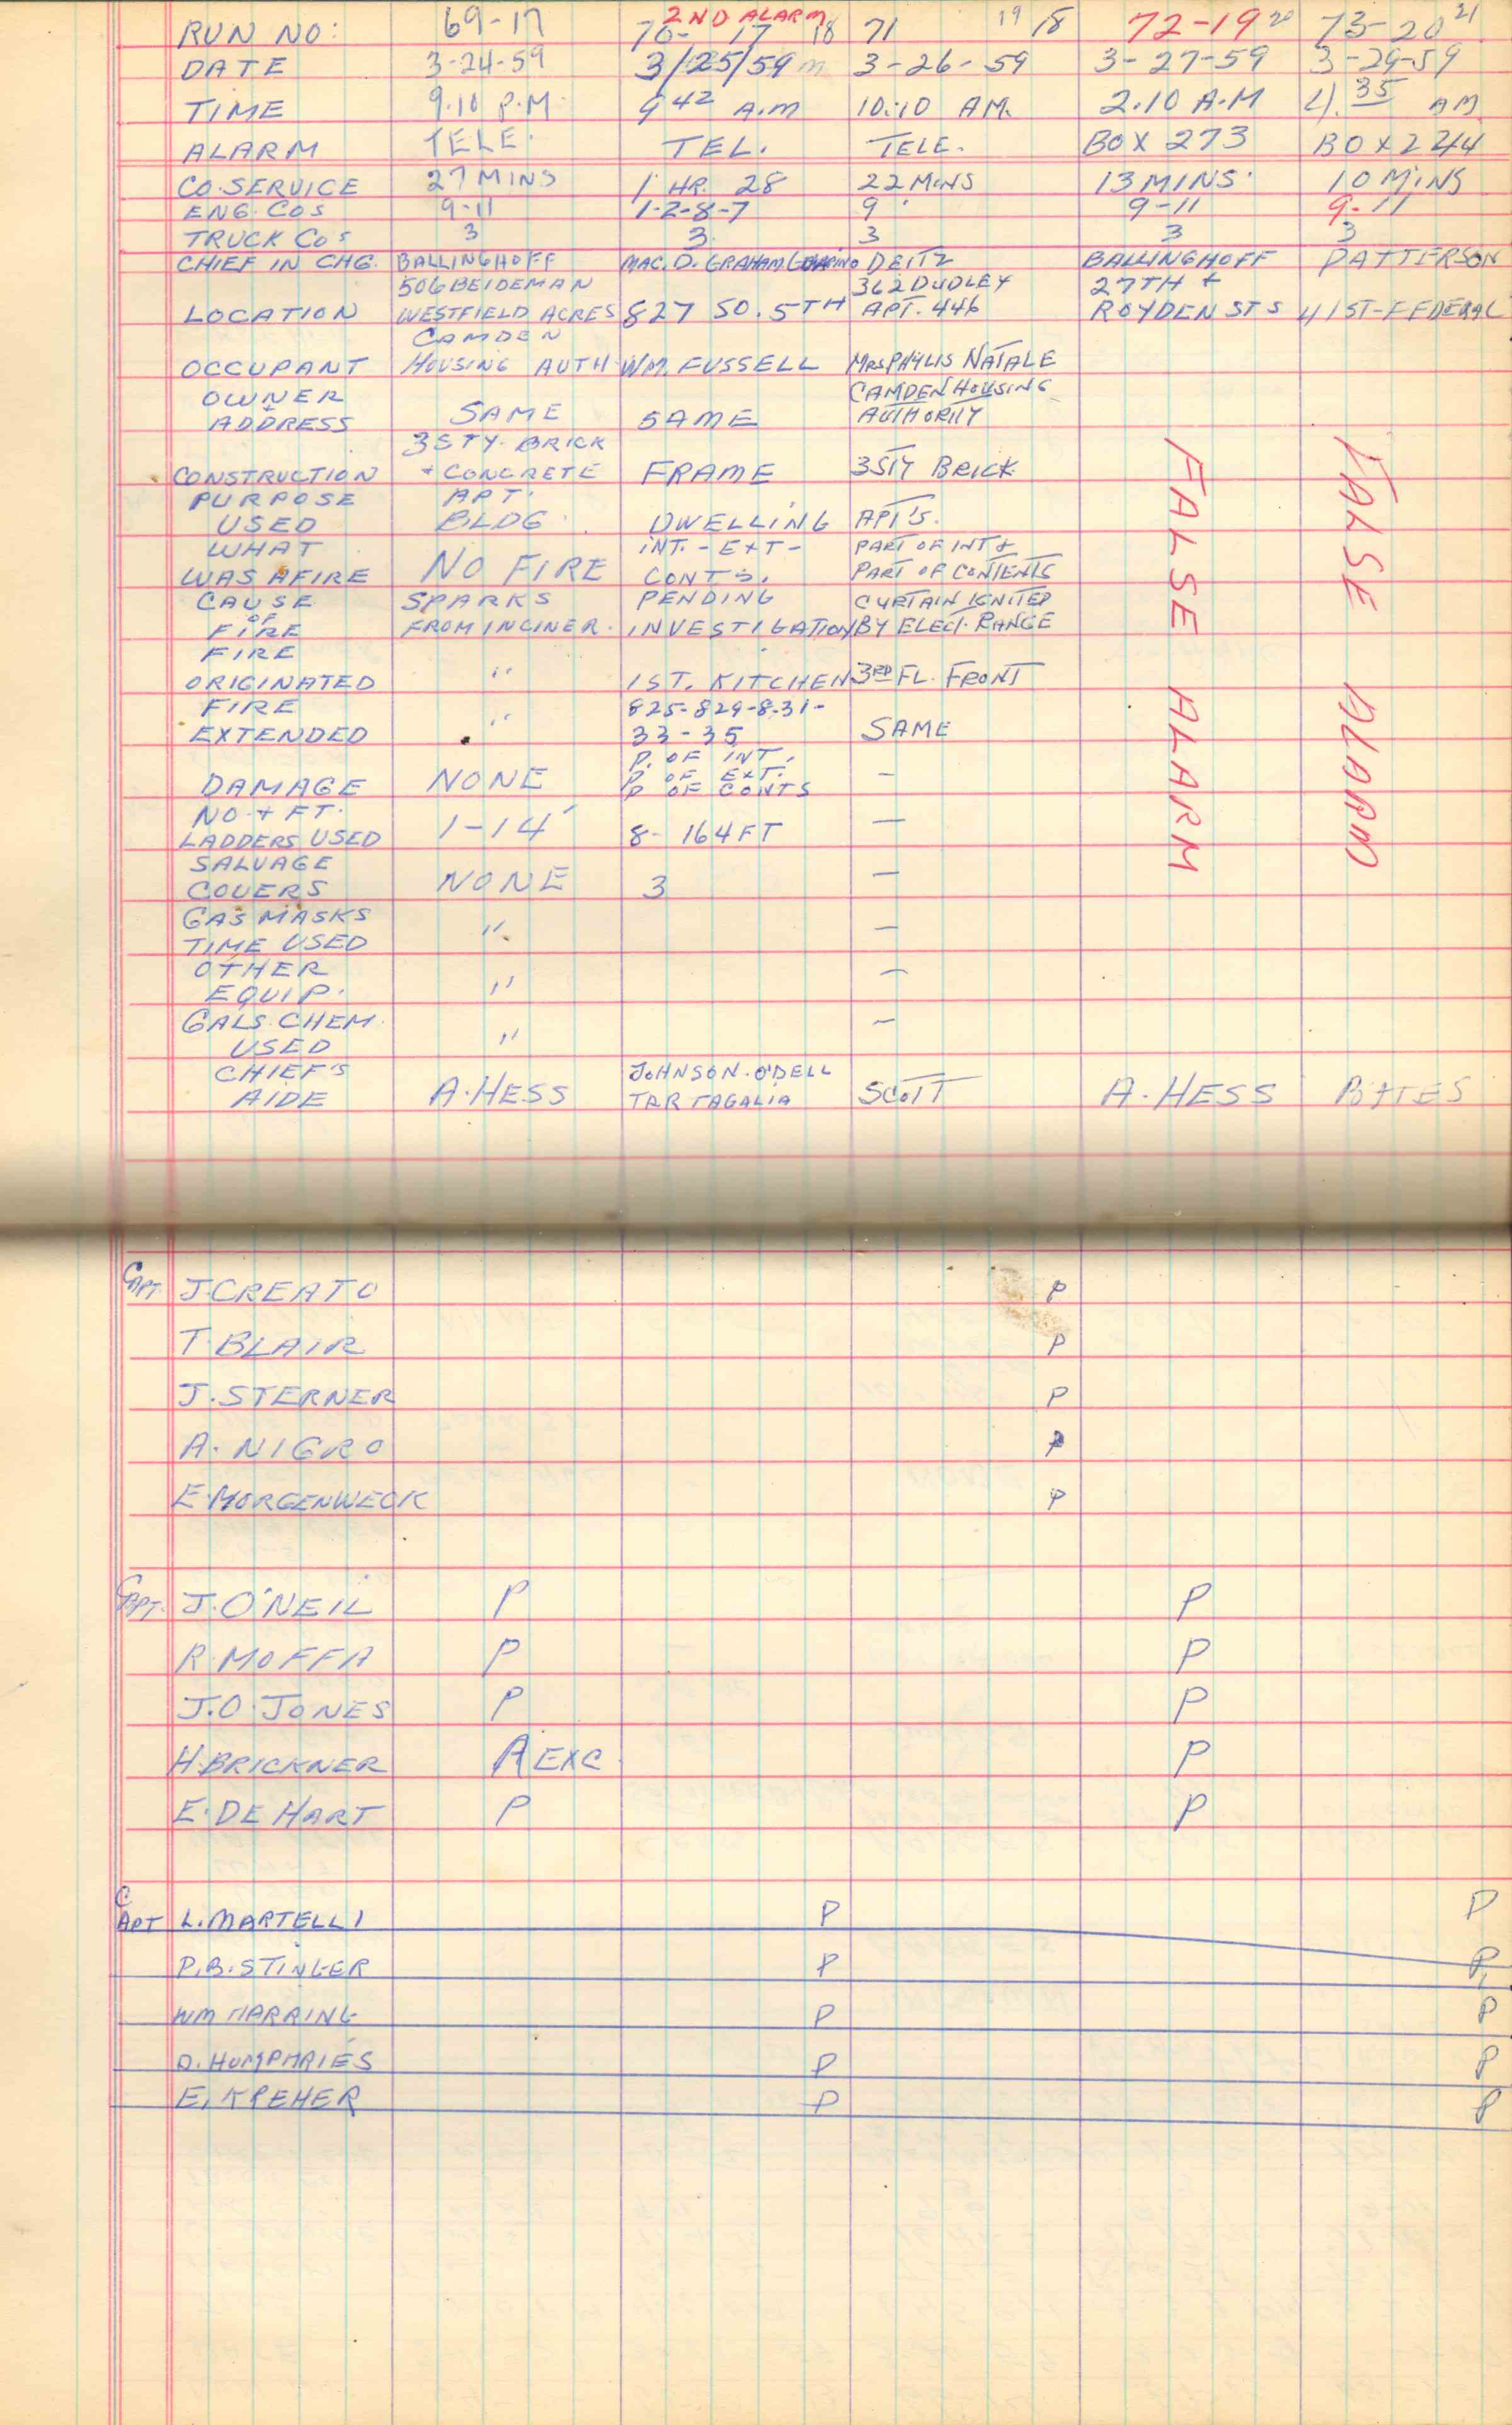 2ND ALARM
RUN NO: 69-17 70-17 18 71 19 18 72-19 20 73-20 21
DATE 3-24-59 3/25/59 3-26-59 3-27-59 3-29-59
TIME 9.10 P.M. 9 42 A.M 10:10 AM. 2.10 A.M 4. 35 AM
ALARM TELE. TEL. TELE. BOX 273 BOX 244
CO. SERVICE 27 MINS 1 HR. 28 22 MINS 13 MINS. 10 MINS
ENG. COS 9-11 1-2-8-7 9 9-11 9-11
TRUCK COS 3 3 3 3 3
CHIEF IN CHG. BALLINGHOFF MAC. D. GRAHAM DEITZ BALLINGHOFF PATTERSON
506 BEIDEMAN 362 DUDLEY 27TH +
LOCATION WESTFIELD ACRES 827 SO. 5TH APT. 446 ROYDEN STS 41ST-FEDERAL
CAMDEN
OCCUPANT HOUSING AUTH. WM. FUSSELL MRS PHYLIS NATALE
OWNER CAMDEN HOUSING
+
ADDRESS SAME SAME AUTHORITY
3 STY. BRICK
CONSTRUCTION + CONCRETE FRAME 3 STY BRICK
PURPOSE APT.
USED BLDG. DWELLING APT'S.
WHAT INT. - EXT - PART OF INT &
WAS AFIRE NO FIRE CONTS. PART OF CONTENTS
CAUSE SPARKS PENDING CURTAIN IGNITED
OF
FIRE FROM INCINER. INVESTIGATION BY ELECT. RANGE
FIRE
ORIGINATED " 1ST. KITCHEN 3RD FL. FRONT
FIRE 825-829-831-
EXTENDED " 33-35 SAME
P. OF INT.
P OF EXT.
DAMAGE NONE P OF CONTS —
NO. + FT.
LADDERS USED 1-14' 8- 164 FT —
SALVAGE
COVERS NONE 3 —
GAS MASKS
TIME USED " —
OTHER
EQUIP. " —
GALS. CHEM. —
USED "
CHIEF'S JOHNSON. O'DELL
AIDE A. HESS TARTAGALIA SCOTT A. HESS BATES
FALSE ALARM
FALSE ALARM
CAPT. J. CREATO P
T. BLAIR P
J. STERNER P
A. NIGRO P
E. MORGENWECK P
CAPT. J. O'NEIL P P
R. MOFFA P P
J. O. JONES P P
H. BRICKNER A EXC. P
E. DE HART P P
CAPT L. MARTELLI P P
P. B. STINGER P P
WM HARRING P P
D. HUMPHRIES P P
E. KREHER P P